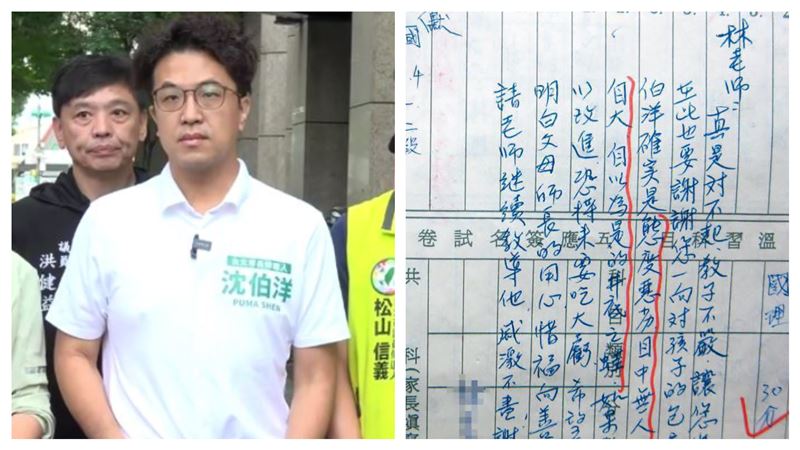 議
洪健益
台北市長參選人
沈伯洋
PUMA SHEN
松山信義
林老師：
真是對不起教子不嚴，讓您
在此也要謝謝您一向對孩子的包
伯洋確實是態度惡劣目中無人
自大、自以為是的井底之蛙，如果
以改進，恐將來要吃大虧，希望
明白父母師長的用心，惜福向善
請老師繼續教導他，感激不盡，謝
國理
30分
卷試名簽應五目科習溫
共
科（家長填寫